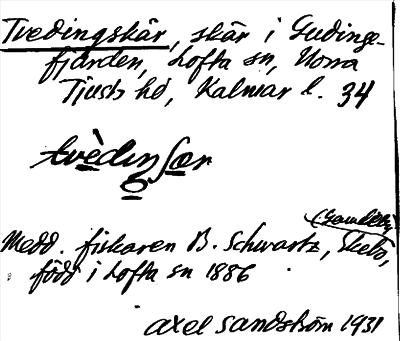 Tvedingskär, skär i Gudinge-
fjärden, Lofta sn, Norra
Tjusts hd, Kalmar l. 34
tvèdiŋʃær
Medd. fiskaren B. Schwartz, Skebo,
född i Lofta sn 1886
axel sandström 1931